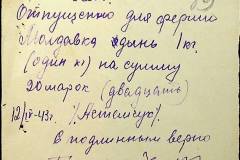 Отпущено для фермы
Молдавка дынь 1 кг.
(один кг) на сумму
20 марок (двадцать)
12/IX-43г.
С подлинным верно